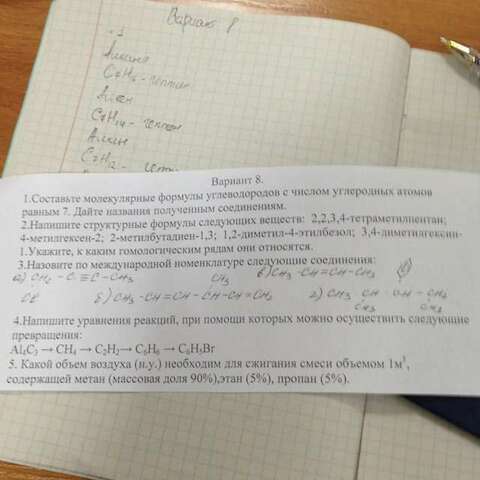 Вариант 8
Алкан
Алкен
C₇H₁₄ - гептен
Алкин
C₇H₁₂ -
Вариант 8.
1.Составьте молекулярные формулы углеводородов с числом углеродных атомов
равным 7. Дайте названия полученным соединениям.
2.Напишите структурные формулы следующих веществ: 2,2,3,4-тетраметилпентан;
4-метилгексен-2; 2-метилбутадиен-1,3; 1,2-диметил-4-этилбезол; 3,4-диметилгексин-
1.Укажите, к каким гомологическим рядам они относятся.
3.Назовите по международной номенклатуре следующие соединения:
а) CH₃ - C ≡ C - CH₃ в) CH₃ -CH=CH-CH₃
CH₃
б) CH₃ -CH=CH - CH-CH=CH₂ г) CH₃ - CH - CH - CH₂
CH₃ CH₃
4.Напишите уравнения реакций, при помощи которых можно осуществить следующие
превращения:
Al₄C₃ → CH₄ → C₂H₂→ C₆H₆ → C₆H₅Br
5. Какой объем воздуха (н.у.) необходим для сжигания смеси объемом 1м³,
содержащей метан (массовая доля 90%),этан (5%), пропан (5%).